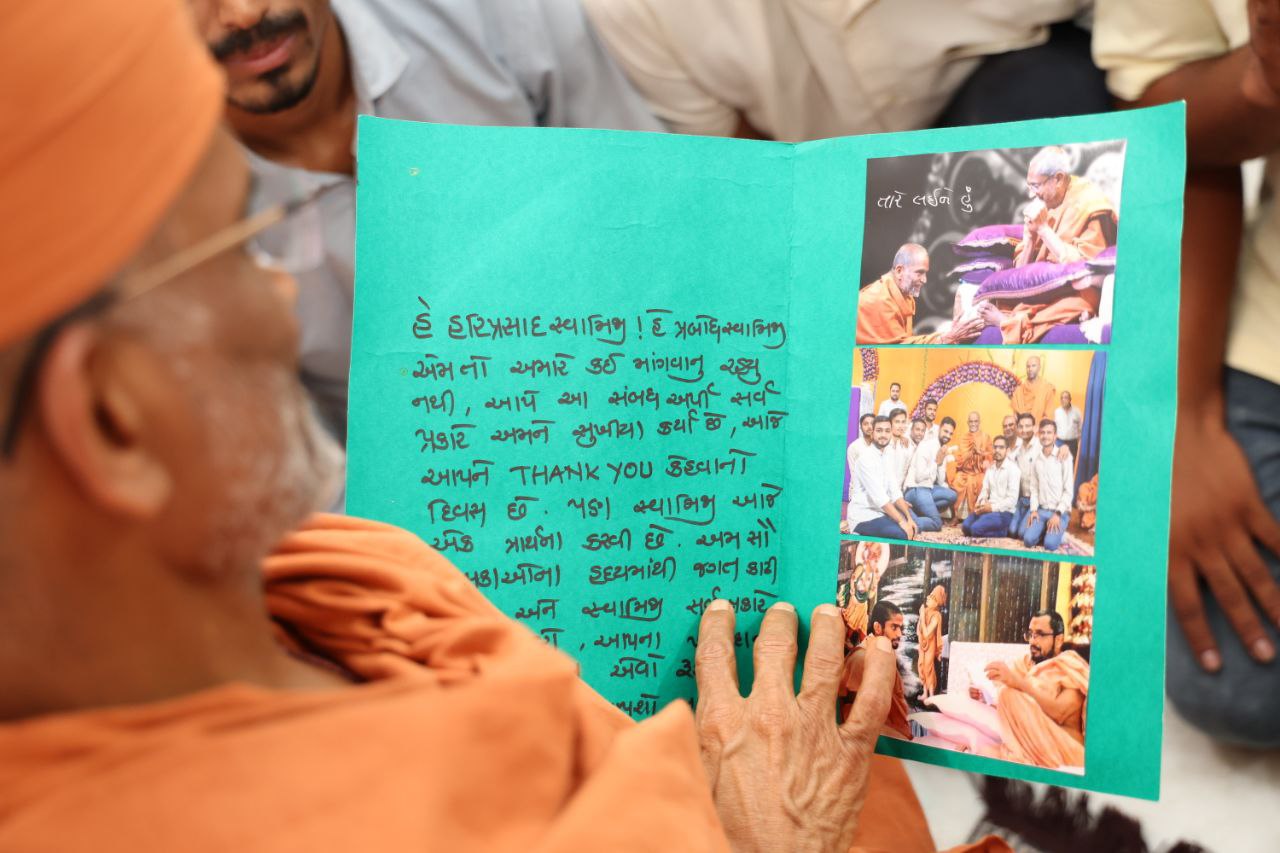 હે હરિપ્રસાદસ્વામિજી ! હે પ્રબોધસ્વામિજી
એમ તો અમારે કઈ માંગવાનુ રહ્યુ
નથી , આપે આ સંબંધ અર્પી સર્વ
પ્રકારે અમને સુખીયા કર્યા છે , આજે
આપને THANK YOU કહેવાનો
દિવસ છે . પણ સ્વામિજી આજે
એક પ્રાર્થના કરવી છે . અમ સૌ
હૃદયમાંથી જગત કાઢી
અને સ્વામિજી
, આપના
એવો
તારે લઈને હું